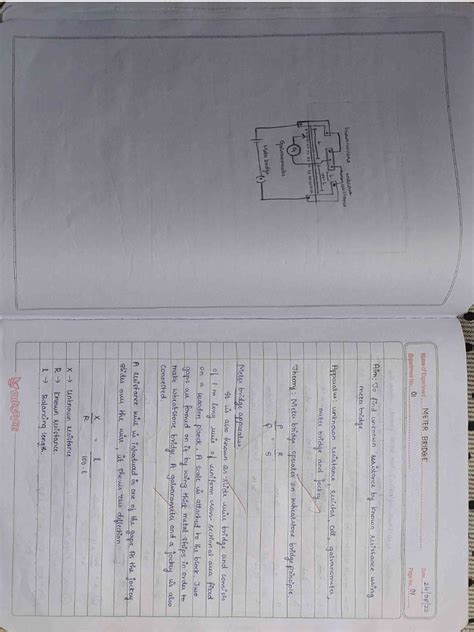 Name of Experiment METER BRIDGE
Date:
Experiment No. 01
Page No. 01
Aim: To find unknown resistance by known resistance using
meter bridge
Apparatus: unknown resistance, resistor, cell, galvanometer,
meter bridge and jockey
Theory: Meter bridge operates on wheatstone bridge principle.
P R
Q S
Meter bridge apparatus
It is also known as slide wire bridge and consists
of 1m long wire of uniform cross-sectional area fixed
on a wooden block. A scale is attached to the block. Two
gaps are formed on it by using thick metal strips in order to
make wheatstone bridge. A galvanometer and a jockey is also
connected.
X = l
R 100-l
A resistance wire is introduced in one of the gaps. As the jockey
slides over the wire, it shows zero deflection
X → Unknown resistance
R → Known resistance
l → Balancing length.
unknown
resistance
Galvanometer
G
Meter bridge